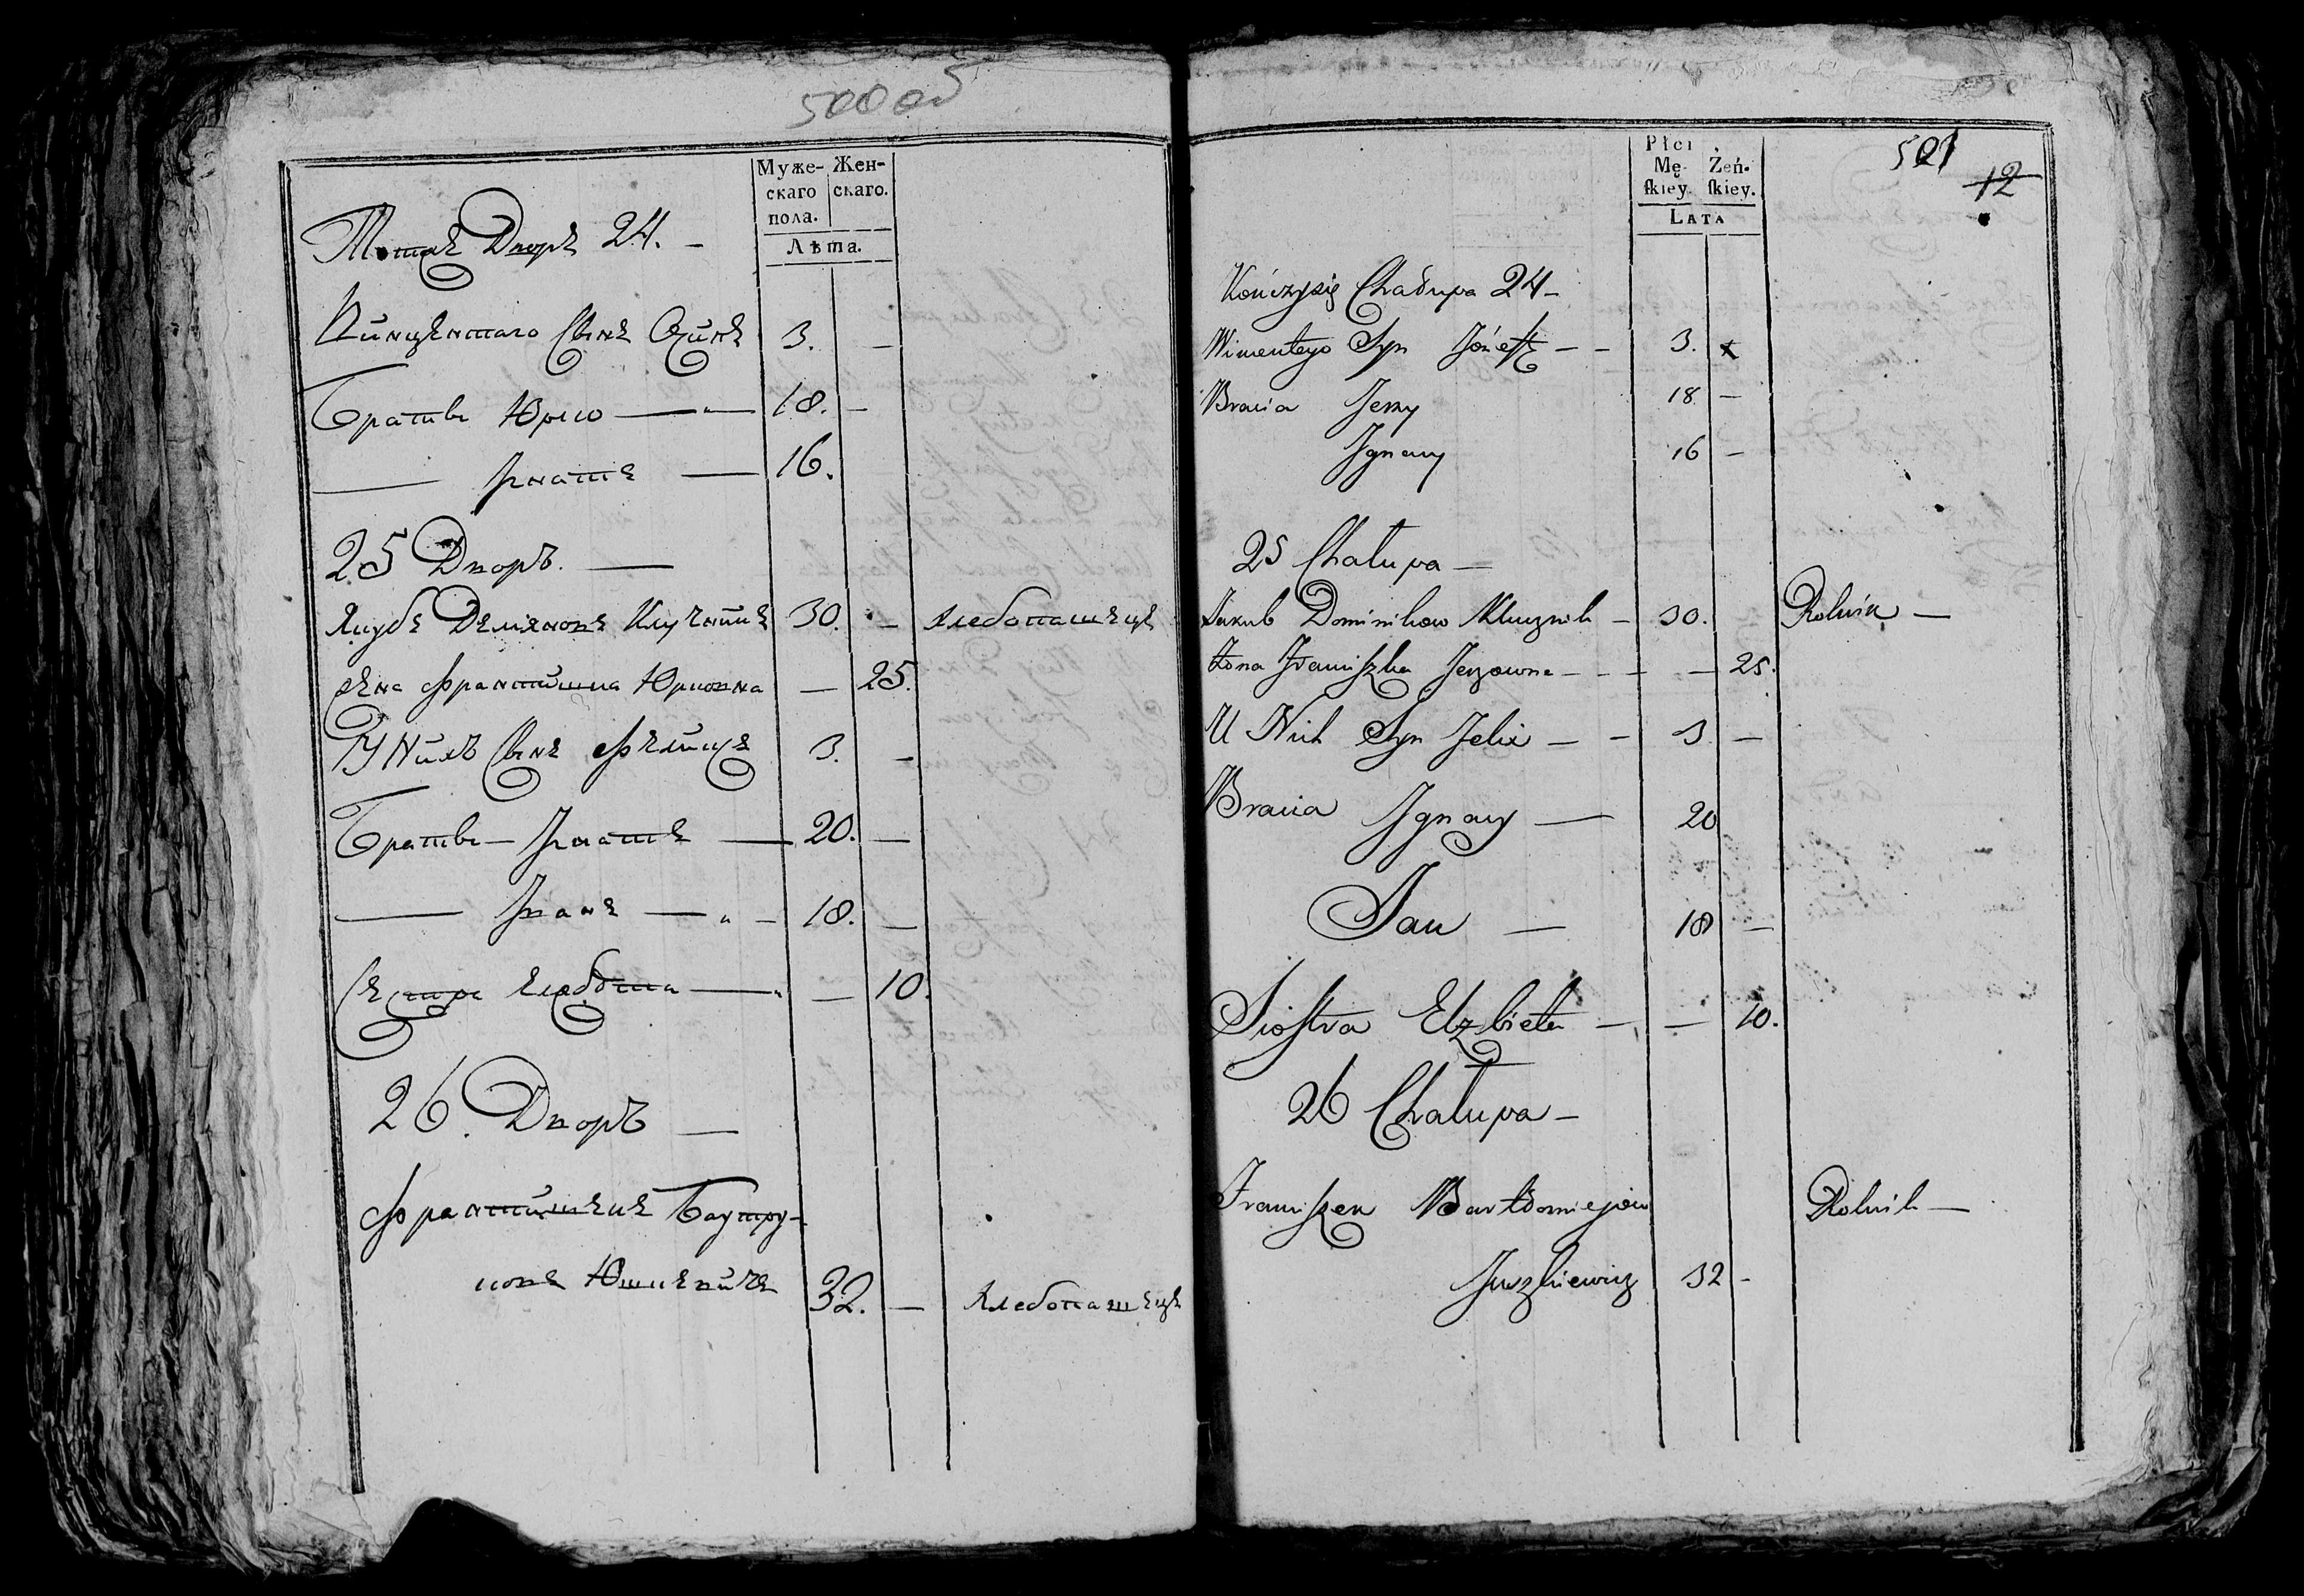 500 об
Муже- Жен-
скаго скаго.
пола.
Лѣта.
Тотже Дворъ 24. —
Винцентаго Сынъ Осипъ 3. —
Братья Юрко — 18. —
— Игнатъ — 16.
25 Дворъ. —
Якубъ Демяновъ Ключникъ 30. — Хлебопашецъ
Жена Франтишка Юрковна — 25.
У Нихъ Сынъ Феликсъ 3. —
Братья — Игнатъ — 20. —
— Иванъ — 18. —
Сестра — 10.
26. Дворъ —
Франтишекъ Баутру-
ковъ Юшкевичъ 32. — Хлебопашецъ
501
12
Płci
Mę- Żeń-
ſkiey. ſkiey.
LATA
Kończysię Chałupa 24 —
Wincentego Syn Józeff — — 3. x
Bracia Jerzy 18 —
Ignacy 16 —
25 Chałupa —
Jakub Dominikow Klucznik — 30. Rolnik —
Żona Franciszka Jerzowna — — — — 25.
U Nich Syn Felix — — 3 —
Bracia Ignacy — 20
Jan — 18 —
Siostra Elzbieta — — 10.
26 Chałupa —
Franciszek Bartłomiejow Rolnik —
Juszkiewicz 32 -